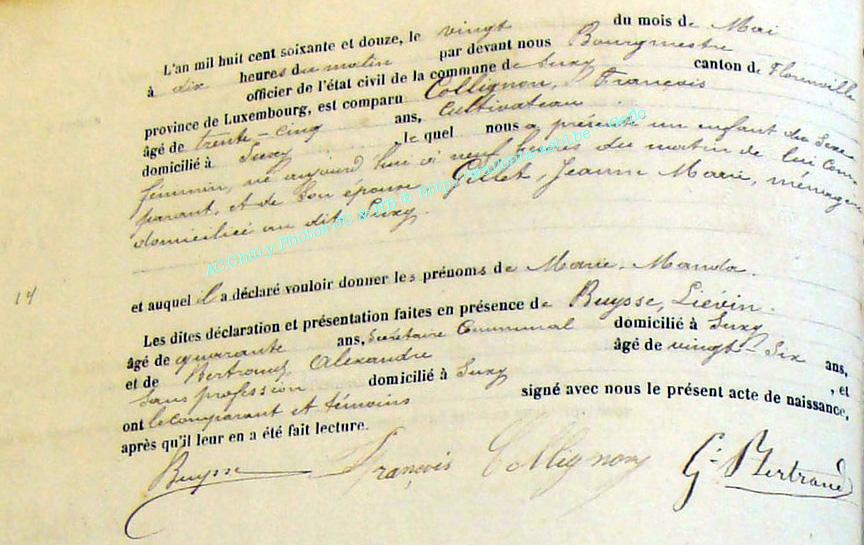 L'an mil huit cent soixante et douze, le vingt du mois de Mai
à dix heures du matin par devant nous Bourgmestre
officier de l'état civil de la commune de Suxy canton de Florenville
province de Luxembourg, est comparu Collignon, François
âgé de trente-cinq ans, Cultivateur
domicilié à Suxy, le quel nous a présenté un enfant du Sexe
féminin, né aujourd'hui à neuf heures du matin de lui com-
parant, et de Son épouse Gillet, Jeanne Marie, ménagère
domiciliée au dit Suxy.
14
et auquel il a déclaré vouloir donner les prénoms de Marie, Manda.
Les dites déclaration et présentation faites en présence de Buysse, Liévin.
âgé de quarante ans, Secrétaire Communal domicilié à Suxy
et de Bertrand Alexandre âgé de vingt-Six ans,
Sans profession domicilié à Suxy, et
ont le comparant et témoins signé avec nous le présent acte de naissance,
après qu'il leur en a été fait lecture.
Buysse François Collignon G. Bertrand